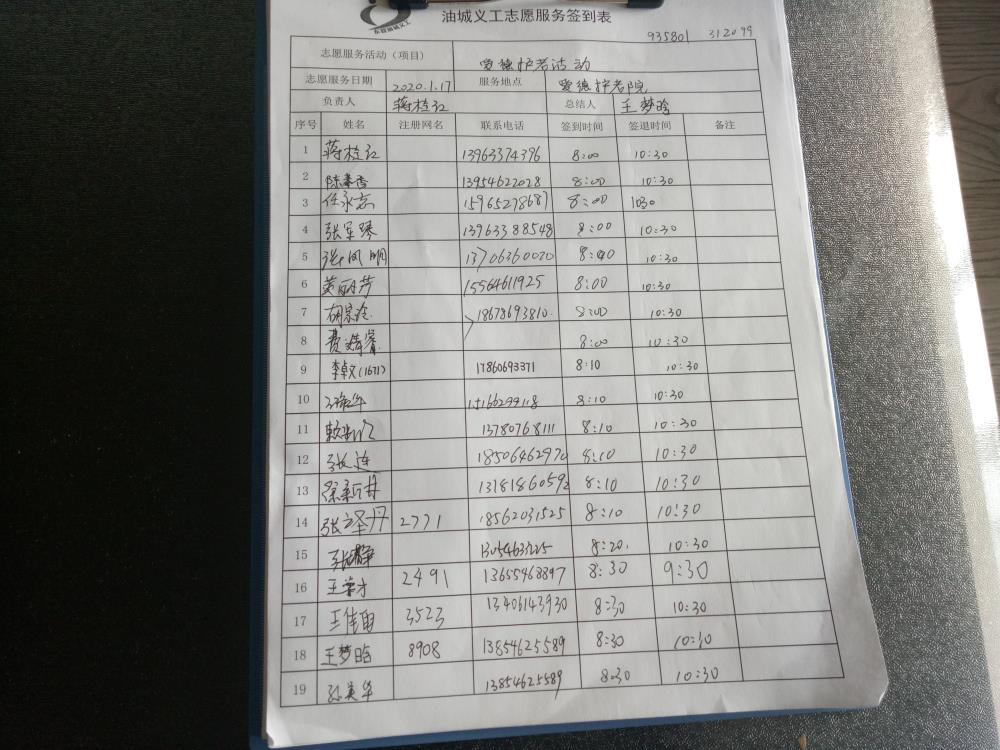 油城义工志愿服务签到表
935801 312099
志愿服务活动（项目） 爱德护老活动
志愿服务日期 2020.1.17 服务地点 爱德护老院
负责人 蒋桂红 总结人 王梦晗
序号 姓名 注册网名 联系电话 签到时间 签退时间 备注
1 蒋桂红 13963374396 8:00 10:30
2 陈春香 13954622028 8:00 10:30
3 任永志 15965278687 8:00 1030
4 张军琴 13963388548 8:00 10:30
5 张凤明 13706360020 8:00 10:30
6 黄丽芳 15564611925 8:00 10:30
7 18678693810 8:00 10:30
8 8:00 10:30
9 李卓文(1671) 17860693371 8:10 10:30
10 15166299118 8:10 10:30
11 13780768111 8:10 10:30
12 张连 18506462970 8:10 10:30
13 徐新井 13181860592 8:10 10:30
14 张译丹 2771 18562031525 8:10 10:30
15 8:20. 10:30
16 王荣才 2491 13655468897 8:30 9:30
17 王倩囡 3523 13406143930 8:30 10:30
18 王梦晗 8908 13854625589 8:30 10:30
19 孙美华 13854625589 8:30 10:30